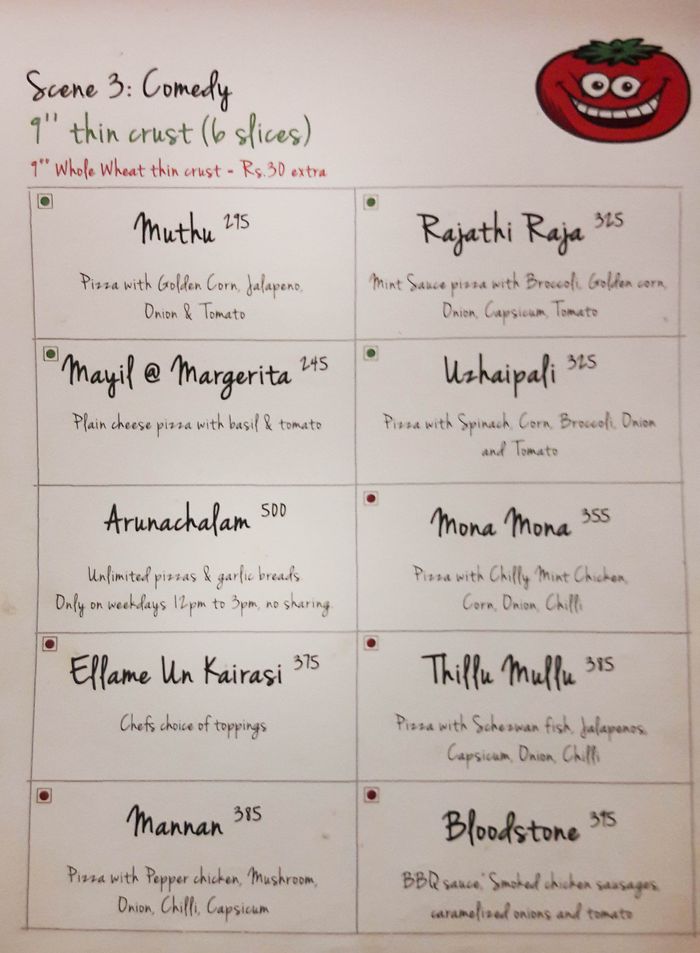 Scene 3: Comedy
9" thin crust (6 slices)
9" Whole Wheat thin crust - Rs.30 extra
Muthu 295
Pizza with Golden Corn, Jalapeno,
Onion & Tomato
Rajathi Raja 325
Mint Sauce pizza with Broccoli, Golden corn,
Onion, Capsicum, Tomato
Mayil @ Margerita 245
Plain cheese pizza with basil & tomato
Uzhaipali 325
Pizza with Spinach, Corn, Broccoli, Onion
and Tomato
Arunachalam 500
Unlimited pizzas & garlic breads
Only on weekdays 12pm to 3pm, no sharing.
Mona Mona 355
Pizza with Chilly Mint Chicken,
Corn, Onion, Chilli
Ellame Un Kairasi 375
Chefs choice of toppings
Thillu Mullu 385
Pizza with Schezwan fish, Jalapenos,
Capsicum, Onion, Chilli
Mannan 385
Pizza with Pepper chicken, Mushroom,
Onion, Chilli, Capsicum
Bloodstone 395
BBQ sauce, Smoked chicken sausages,
caramelized onions and tomato